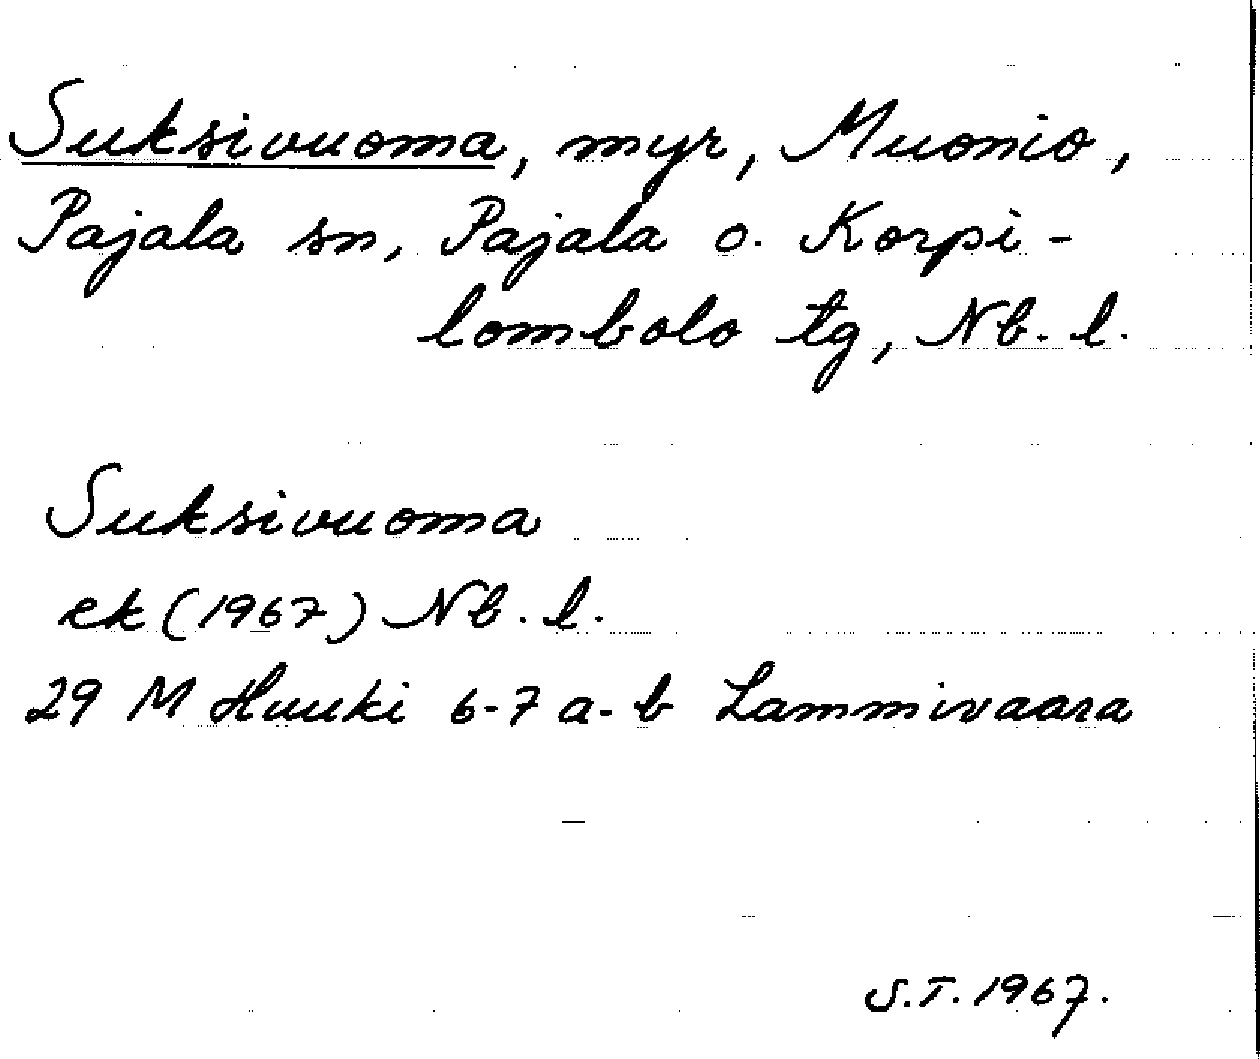 Suksivuoma, myr, Muonio,
Pajala sn, Pajala o. Korpi-
lombolo tg, Nb. l.
Suksivuoma
ek (1967) Nb. l.
29 M Huuki 6-7 a-b Lammivaara
S.T. 1967.